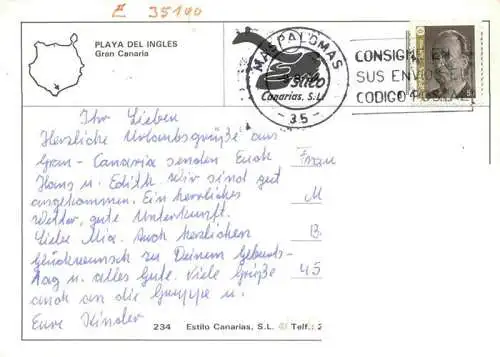 E 35100
PLAYA DEL INGLES
Gran Canaria
MASPALOMAS
-35-
Canarias, S.L.
CONSIGNE EN
SUS ENVIOS EL
CODIGO POSTAL
Ihr Lieben
Herzliche Urlaubsgrüße aus
Gran-Canaria senden Euch
Hans u. Edith. Wir sind gut
angekommen. Ein herrliches
Wetter, gute Unterkunft.
Liebe Mia. Auch herzlichen
Glückwunsch zu Deinem Geburts-
tag u. alles Gute. Viele Grüße
auch an die Gruppe u.
Eure Kinder
Frau
M
B
45
234 Estilo Canarias, S.L. © Telf.: 2